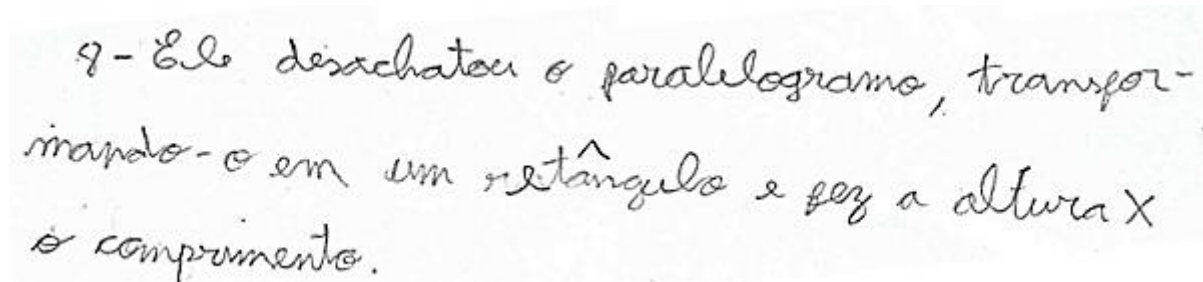 8-Ele desachatou o paralelogramo, transfor-
mando-o em um retângulo e fez a altura X
o comprimento.